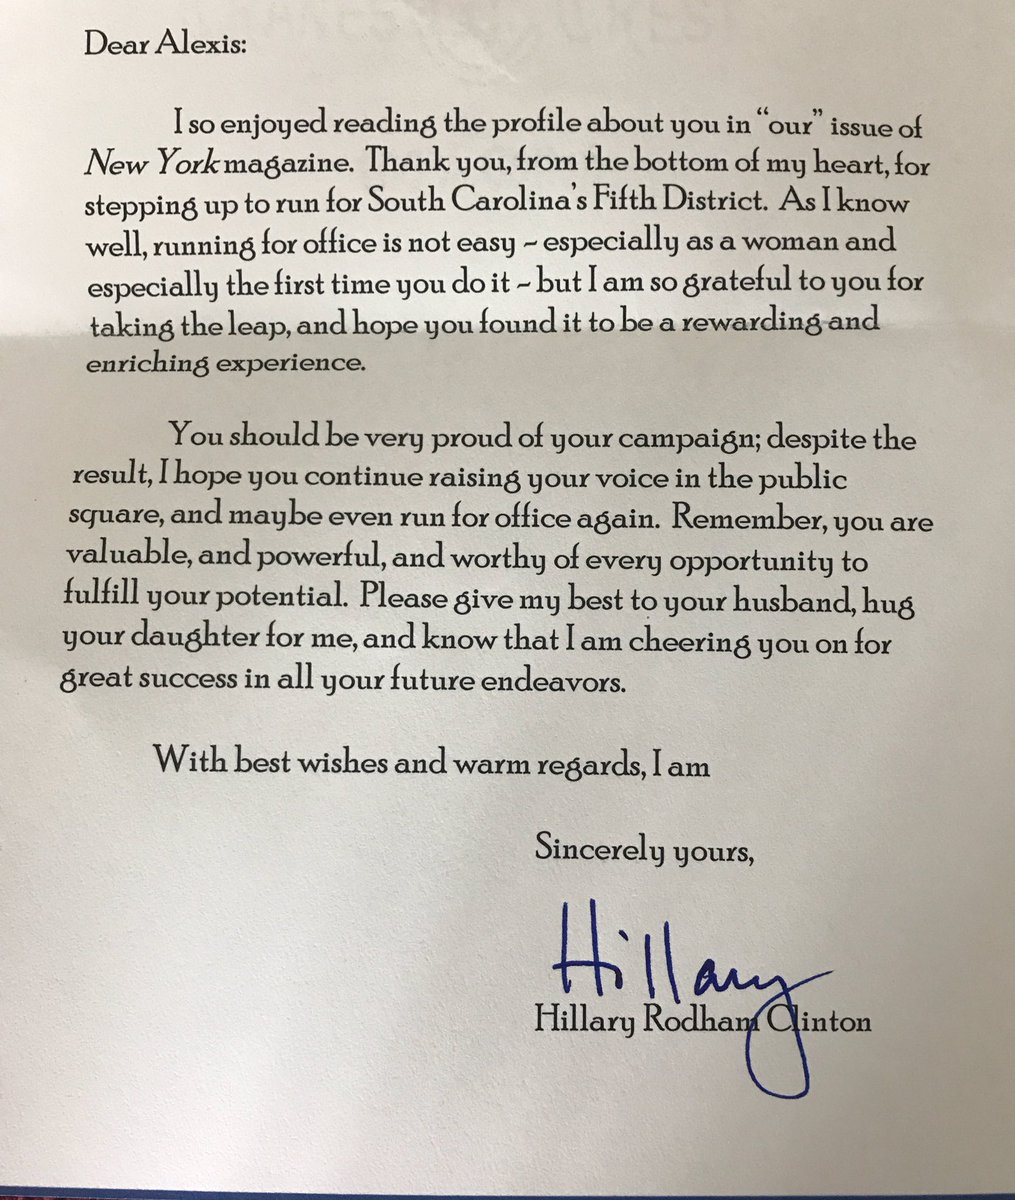 Dear Alexis:
I so enjoyed reading the profile about you in “our” issue of
New York magazine. Thank you, from the bottom of my heart, for
stepping up to run for South Carolina's Fifth District. As I know
well, running for office is not easy ~ especially as a woman and
especially the first time you do it ~ but I am so grateful to you for
taking the leap, and hope you found it to be a rewarding and
enriching experience.
You should be very proud of your campaign; despite the
result, I hope you continue raising your voice in the public
square, and maybe even run for office again. Remember, you are
valuable, and powerful, and worthy of every opportunity to
fulfill your potential. Please give my best to your husband, hug
your daughter for me, and know that I am cheering you on for
great success in all your future endeavors.
With best wishes and warm regards, I am
Sincerely yours,
Hillary
Hillary Rodham Clinton